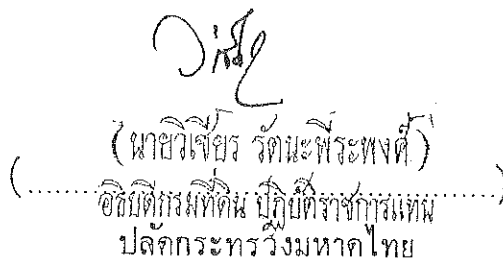 (นายวิเชียร รัตนะพีระพงศ์)
(........................................)
อธิบดีกรมที่ดิน ปฏิบัติราชการแทน
ปลัดกระทรวงมหาดไทย